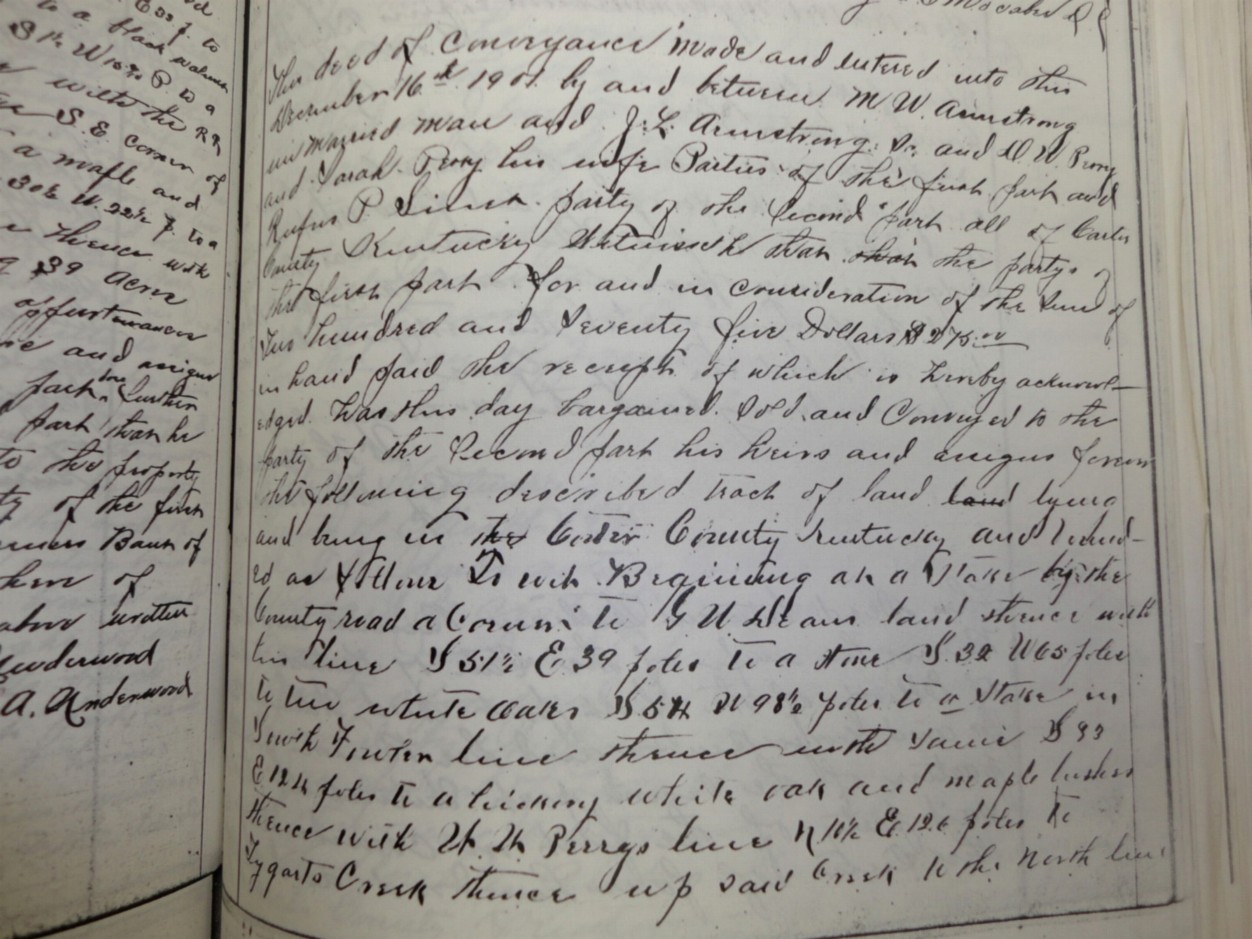 Esq. to
to a black walnut
W 10½ P to a
with the RR
S. E. Corner of
a maple and
30½ W. 22½ P. to a
thence with
39 acres
appurtenances
and assigns
part further
part than he
to the property
of the first
Bank of
of
above written
Underwood
A. Underwood
This deed of Conveyance made and entered into this
December 16th 1901 by and between M W. Armstrong
un married man and J. L. Armstrong. Sr. and W. Perry
and Sarah Perry his wife Parties of the first part and
Rufus P party of the Second part all of Carter
County Kentucky Witnesseth than the partys of
the first part for and in consideration of the Sum of
Two hundred and Seventy five Dollars $275.00
in hand paid the receipt of which is hereby acknowl-
edged. has this day bargained. Sold and Conveyed to the
party of the Second part his heirs and assigns forever
the following described track of land land lying
and being in the Carter County Kentucky and bound-
ed as follows To wit Beginning at a Stake by the
County road a Corner to G W Deans land thence with
his line S 51½ E 39 poles to a stone S 32 W 65 poles
to two white oaks S 54 W 98½ poles to a Stake in
line thence with same S 33
E 124 poles to a hickory white oak and maple bushes
thence with Perrys line N 16½ E 126 poles to
Tygarts Creek thence up said Creek to the North line